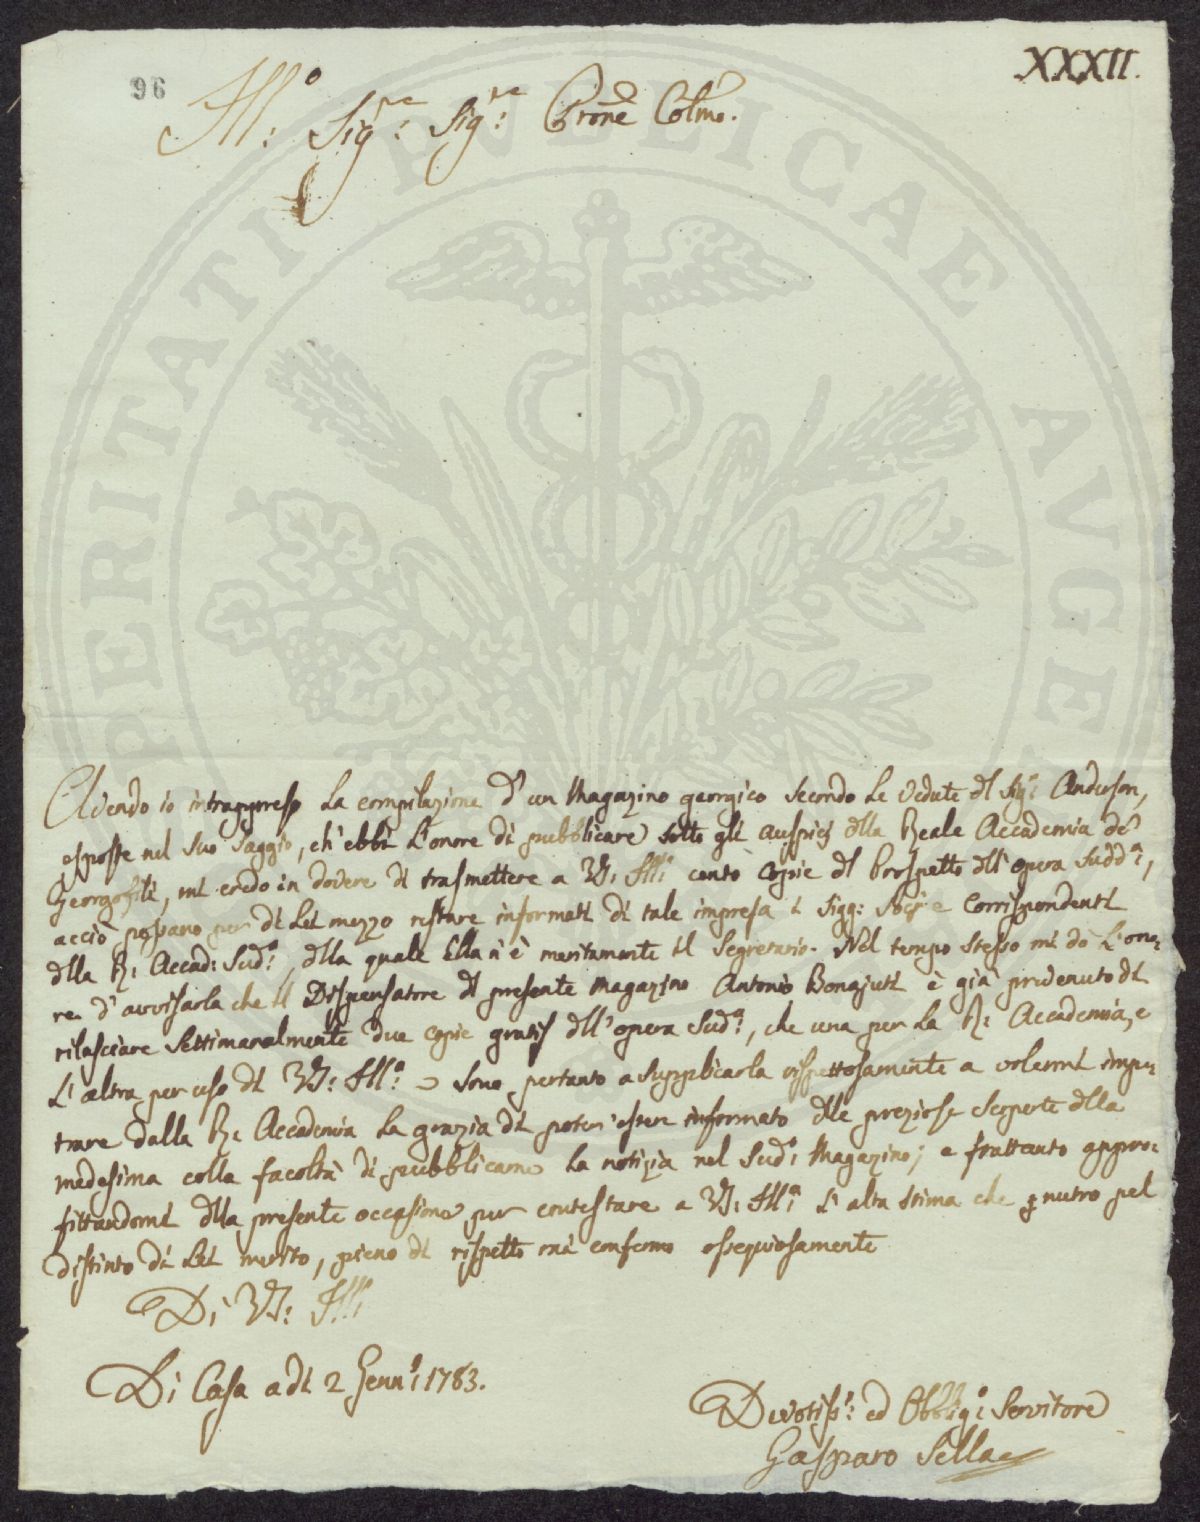 96
XXXII.
Ill:o Sig:re Sig:re Prone Colmo.
Avendo io intrappreso la compilazione d'un Magazino georgico secondo le vedute dl Sig: Anderson,
esposte nel suo Saggio, ch'ebbi l'onore di pubblicare sotto gli auspicj dlla Reale Accademia de'
Georgofili, mi credo in dovere di trasmettere a VS: Ill: cento copie dl Prospetto dll'opera sudd:a,
acciò possano per di Lei mezzo restare informati di tale impresa i Sigg: Socj e Corrispondenti
dlla R: Accad: Sud:a, dlla quale Ella n'è meritamente il Segretario. Nel tempo stesso mi dò l'ono:
re d'avvisarla che il Dispensatore dl presente Magazino Antonio Bonajuti è già prevenuto di
rilasciare settimanalmente due copie gratis dll'opera sud:a, che una per la R: Accademia, e
l'altra per uso di VS: Ill:a. Sono pertanto a supplicarla rispettosamente a volermi impe:
trare dalla R: Accademia la grazia di poter esser informato dlle preziose scoperte dlla
medesima colla facoltà di pubblicarne la notizia nel sud:o Magazino; e frattanto appro:
fittandomi dlla presente occasione per contestare a VS: Ill:a l'alta stima che nutro pel
distinto di Lei merito, pieno di rispetto mi confermo ossequiosamente
Di VS: Ill:
Di Casa adi 2 Genn:o 1783.
Devotiss:o ed Obblig:o Servitore
Gasparo Sella
PERITATI PUBLICAE AUGE